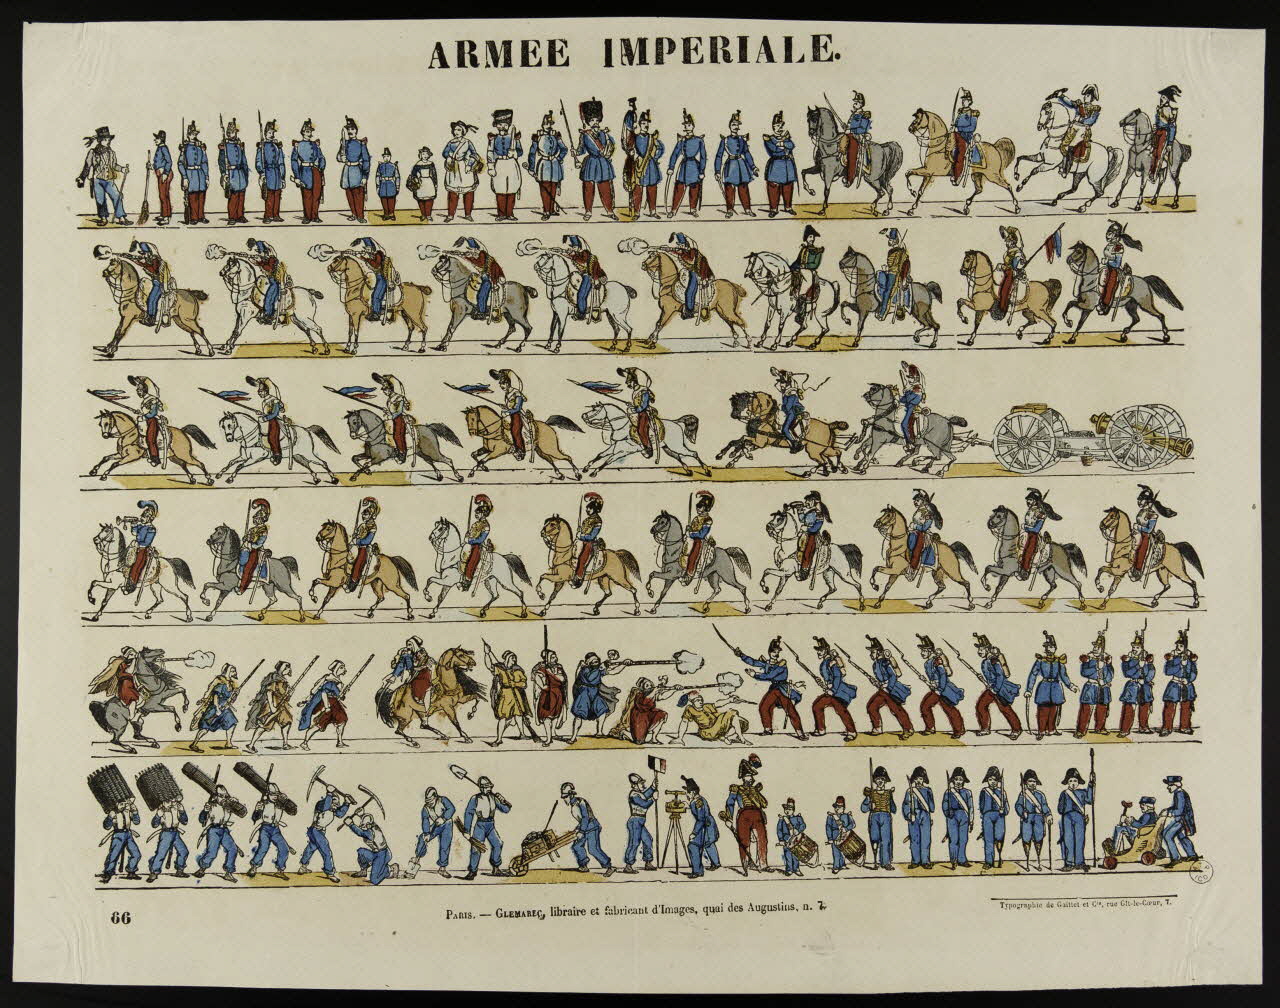 ARMEE IMPERIALE.
66
PARIS. — GLEMAREC, libraire et fabricant d'Images, quai des Augustins, n. 7.
Typographie de Gaittet et Cie, rue Gît-le-Cœur, 7.